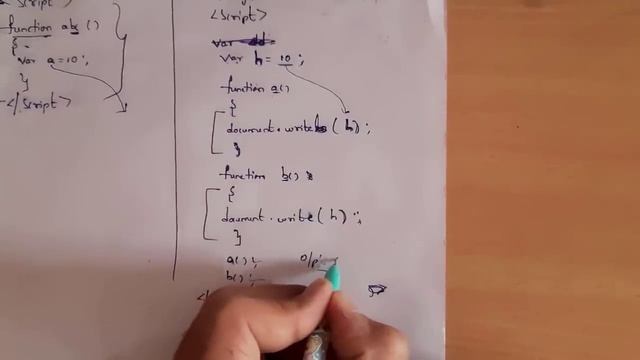 Script>
function abc ()
{
var a=10;
}
</ Script>
<Script>
var h = 10 ;
function a()
{
document.write ( h ) ;
}
function b()
{
document.write ( h ) ;
}
a() ;
b() ;
o/p:
</